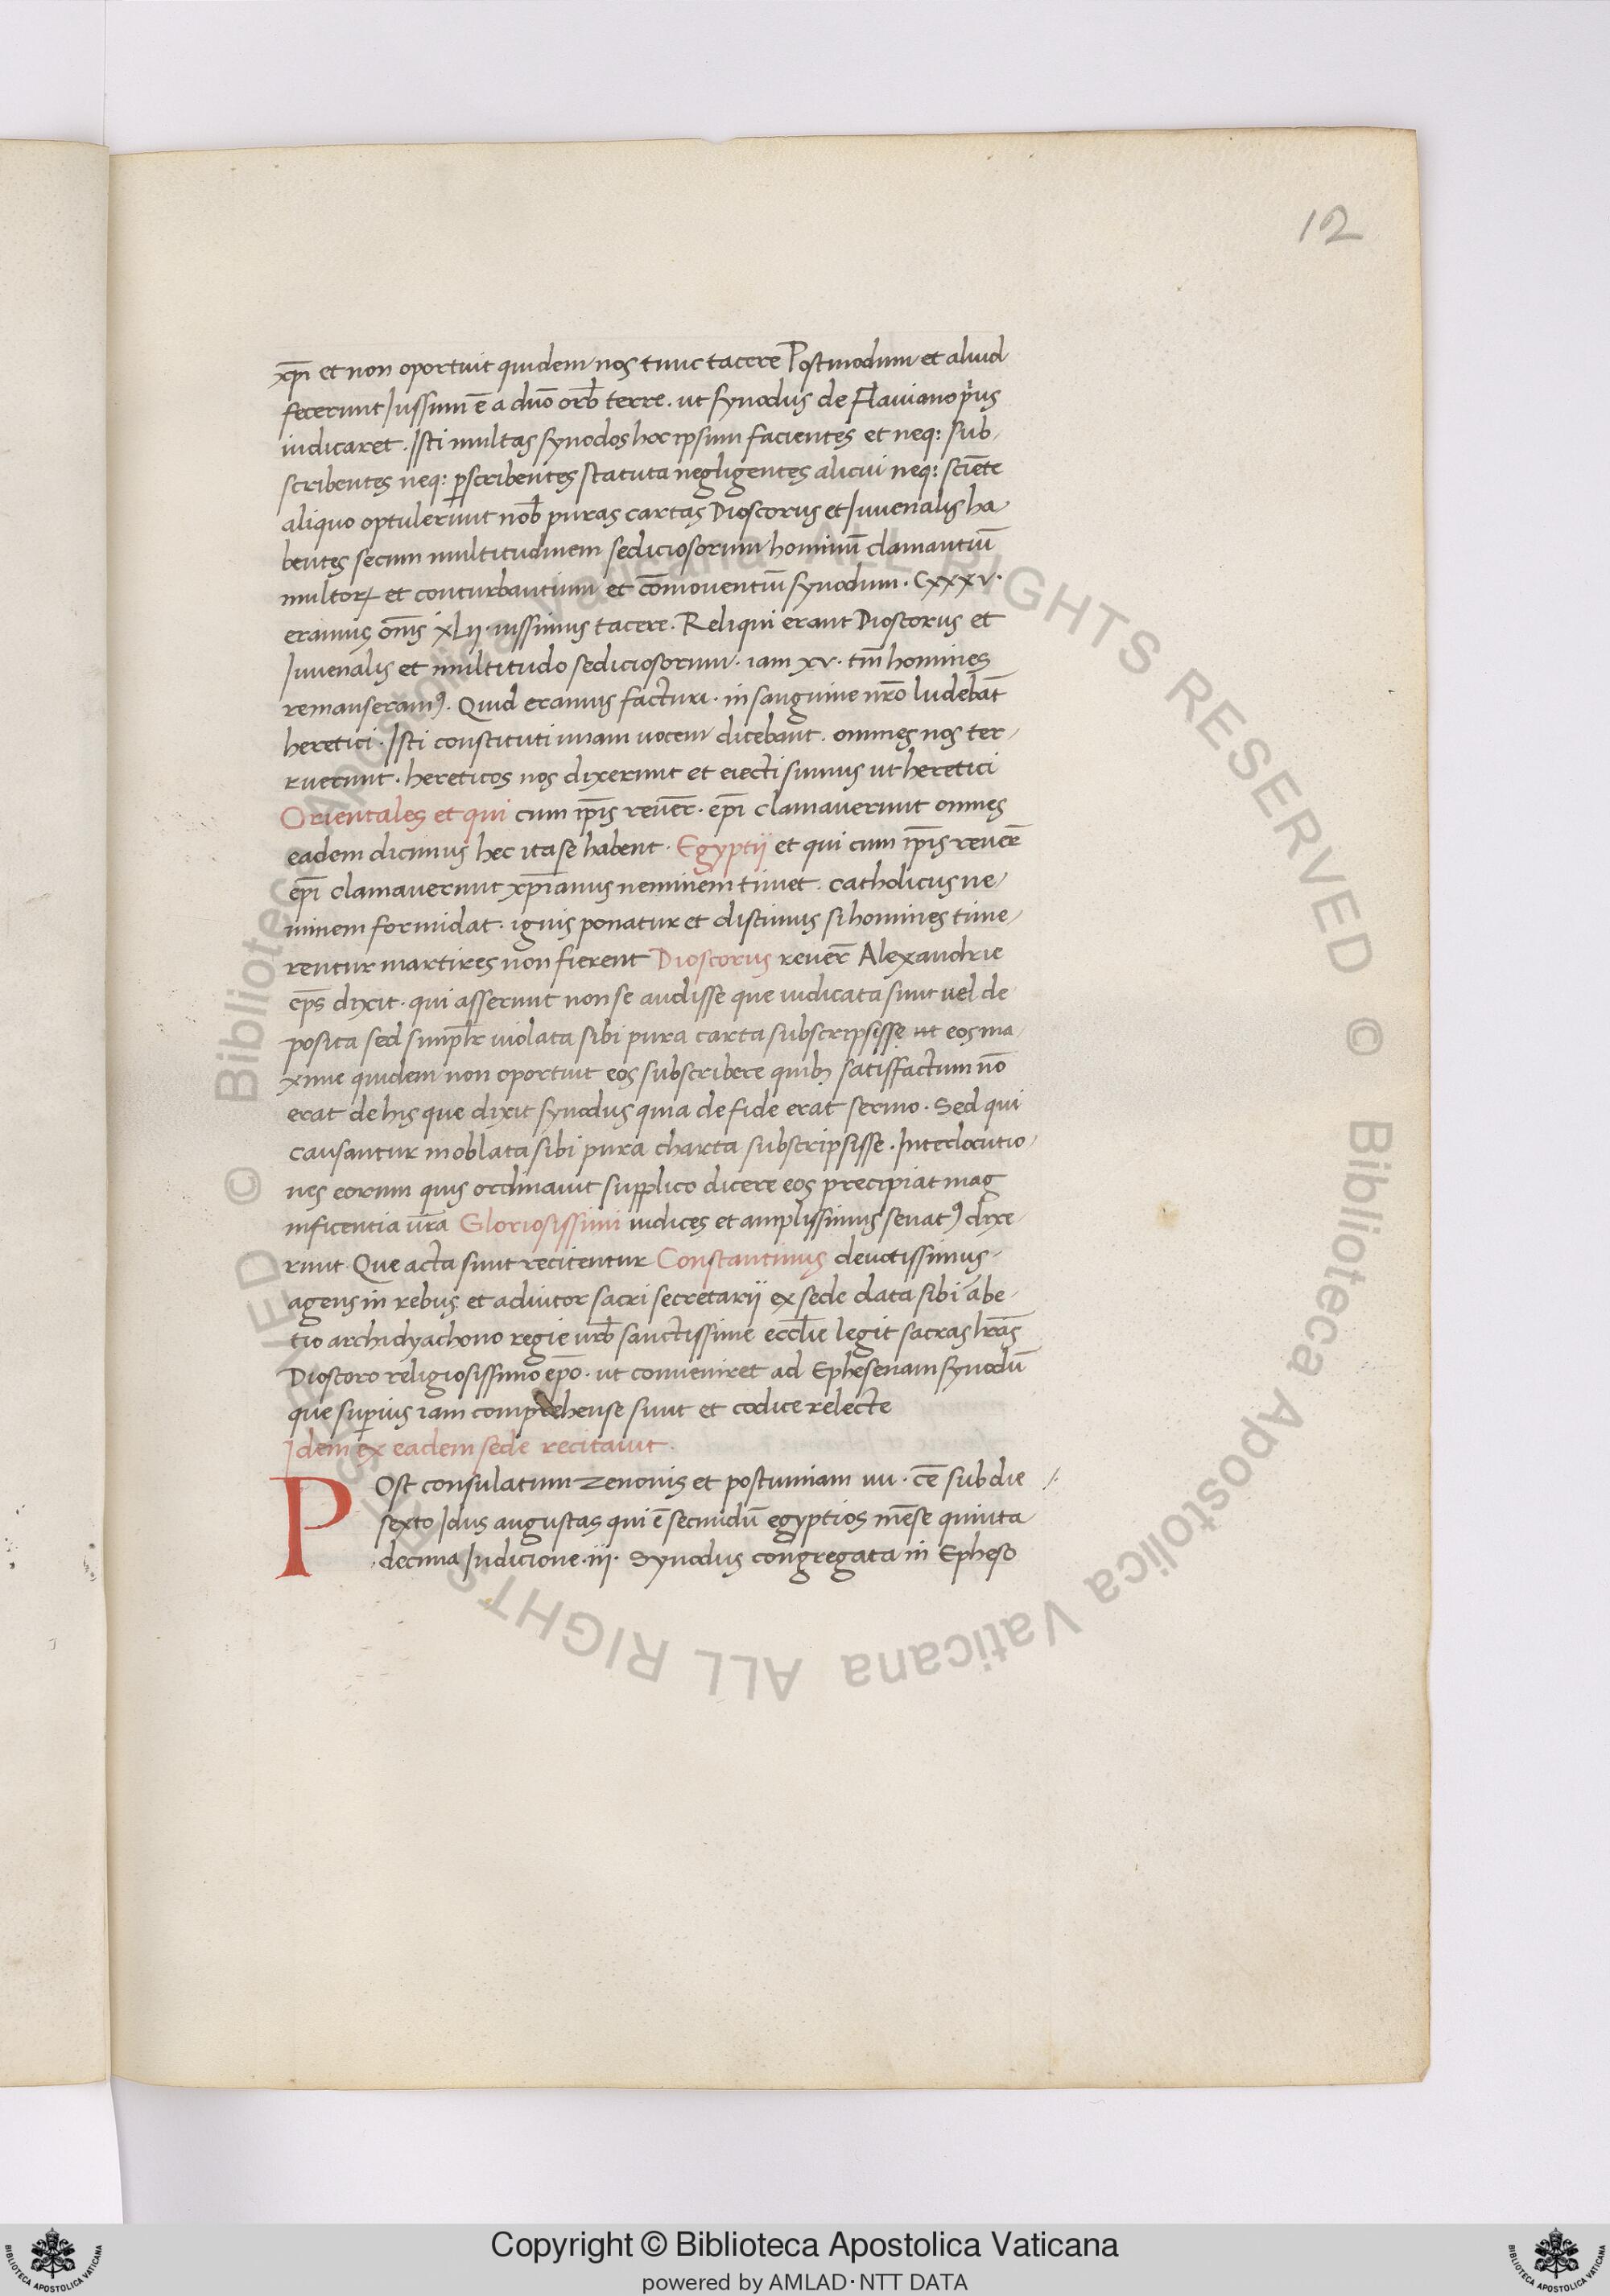 12
xp̄i et non oportuit quidem nos tunc tacere Postmodum et aliud
fecerunt Iussum ē a dn̄o orb̄ terre. ut synodus de Flaviano prius
iudicaret. Isti multas synodos hoc ipsum facientes et neq: sub-
scribentes neq: p̱scribentes statuta negligentes alicui neq: sciēte
aliquo optulerunt nob̄ puras cartas Dioscorus et Iuvenalis ha-
bentes secum multitudinem sediciosorum hominū clamantiū
multoꝝ et conturbantium et cōmoventiū synodum. Cxxxv.
eramus om̄s xLij. iussimus tacere. Reliqui erant Dioscorus et
Iuvenalis et multitudo sediciosorum. iam xv. tm̄ homines
remanseramꝰ. Quid eramus facturi. in sanguine nr̄o ludebāt
heretici. Isti constituti unam uocem dicebant. omnes nos ter-
ruerunt. hereticos nos dixerunt et eiecti sumus ut heretici
Orientales et qui cum ip̄is reuer̄. ep̄i clamaverunt omnes
eadem dicimus hec ita se habent. Egyptij et qui cum ip̄is reuer̄
ep̄i clamaverunt xp̄ianus neminem timet. catholicus ne-
minem formidat. ignis ponatur et discimus si homines time-
rentur martires non fierent Dioscorus reuer̄ Alexandrie
ep̄s dixit. qui asserunt non se audisse que iudicata sunt uel de
posita sed simpl̄r uiolata sibi pura carta subscripsisse ut eos ma-
xime quidem non oportuit eos subscribere quibꝫ satisfactum nō
erat de his que dixit synodus quia de fide erat sermo. Sed qui
causantur in oblata sibi pura charta subscripsisse. Interlocutio-
nes eorum quis ordinavit supplico dicere eos precipiat mag
nificentia ur̄a Gloriosissimi iudices et amplissimus senatꝰ dixe-
runt. Que acta sunt recitentur Constantinus deuotissimus-
agens in rebus et adiutor sacri secretarij ex sede data sibi ābe-
tio archidyachono regie urb̄ sanctissime eccl̄ie legit sacras lr̄as
Dioscoro religiosissimo ep̄o. ut conveniret ad Ephesenam synodū
que sup̱ius iam comprehense sunt et codice relecte
Idem ex eadem sede recitavit.
POst consulatum zenonis et postumiam uu. cē sub die
sexto Idus augustas qui ē secundū egyptios mēse quinta
decima Indicione .iij. Synodus congregata in Epheso
© Biblioteca Apostolica Vaticana ALL RIGHTS RESERVED © Biblioteca Apostolica Vaticana ALL RIGHTS RESERVED
Copyright © Biblioteca Apostolica Vaticana
powered by AMLAD·NTT DATA
BIBLIOTECA APOSTOLICA VATICANA
BIBLIOTECA APOSTOLICA VATICANA